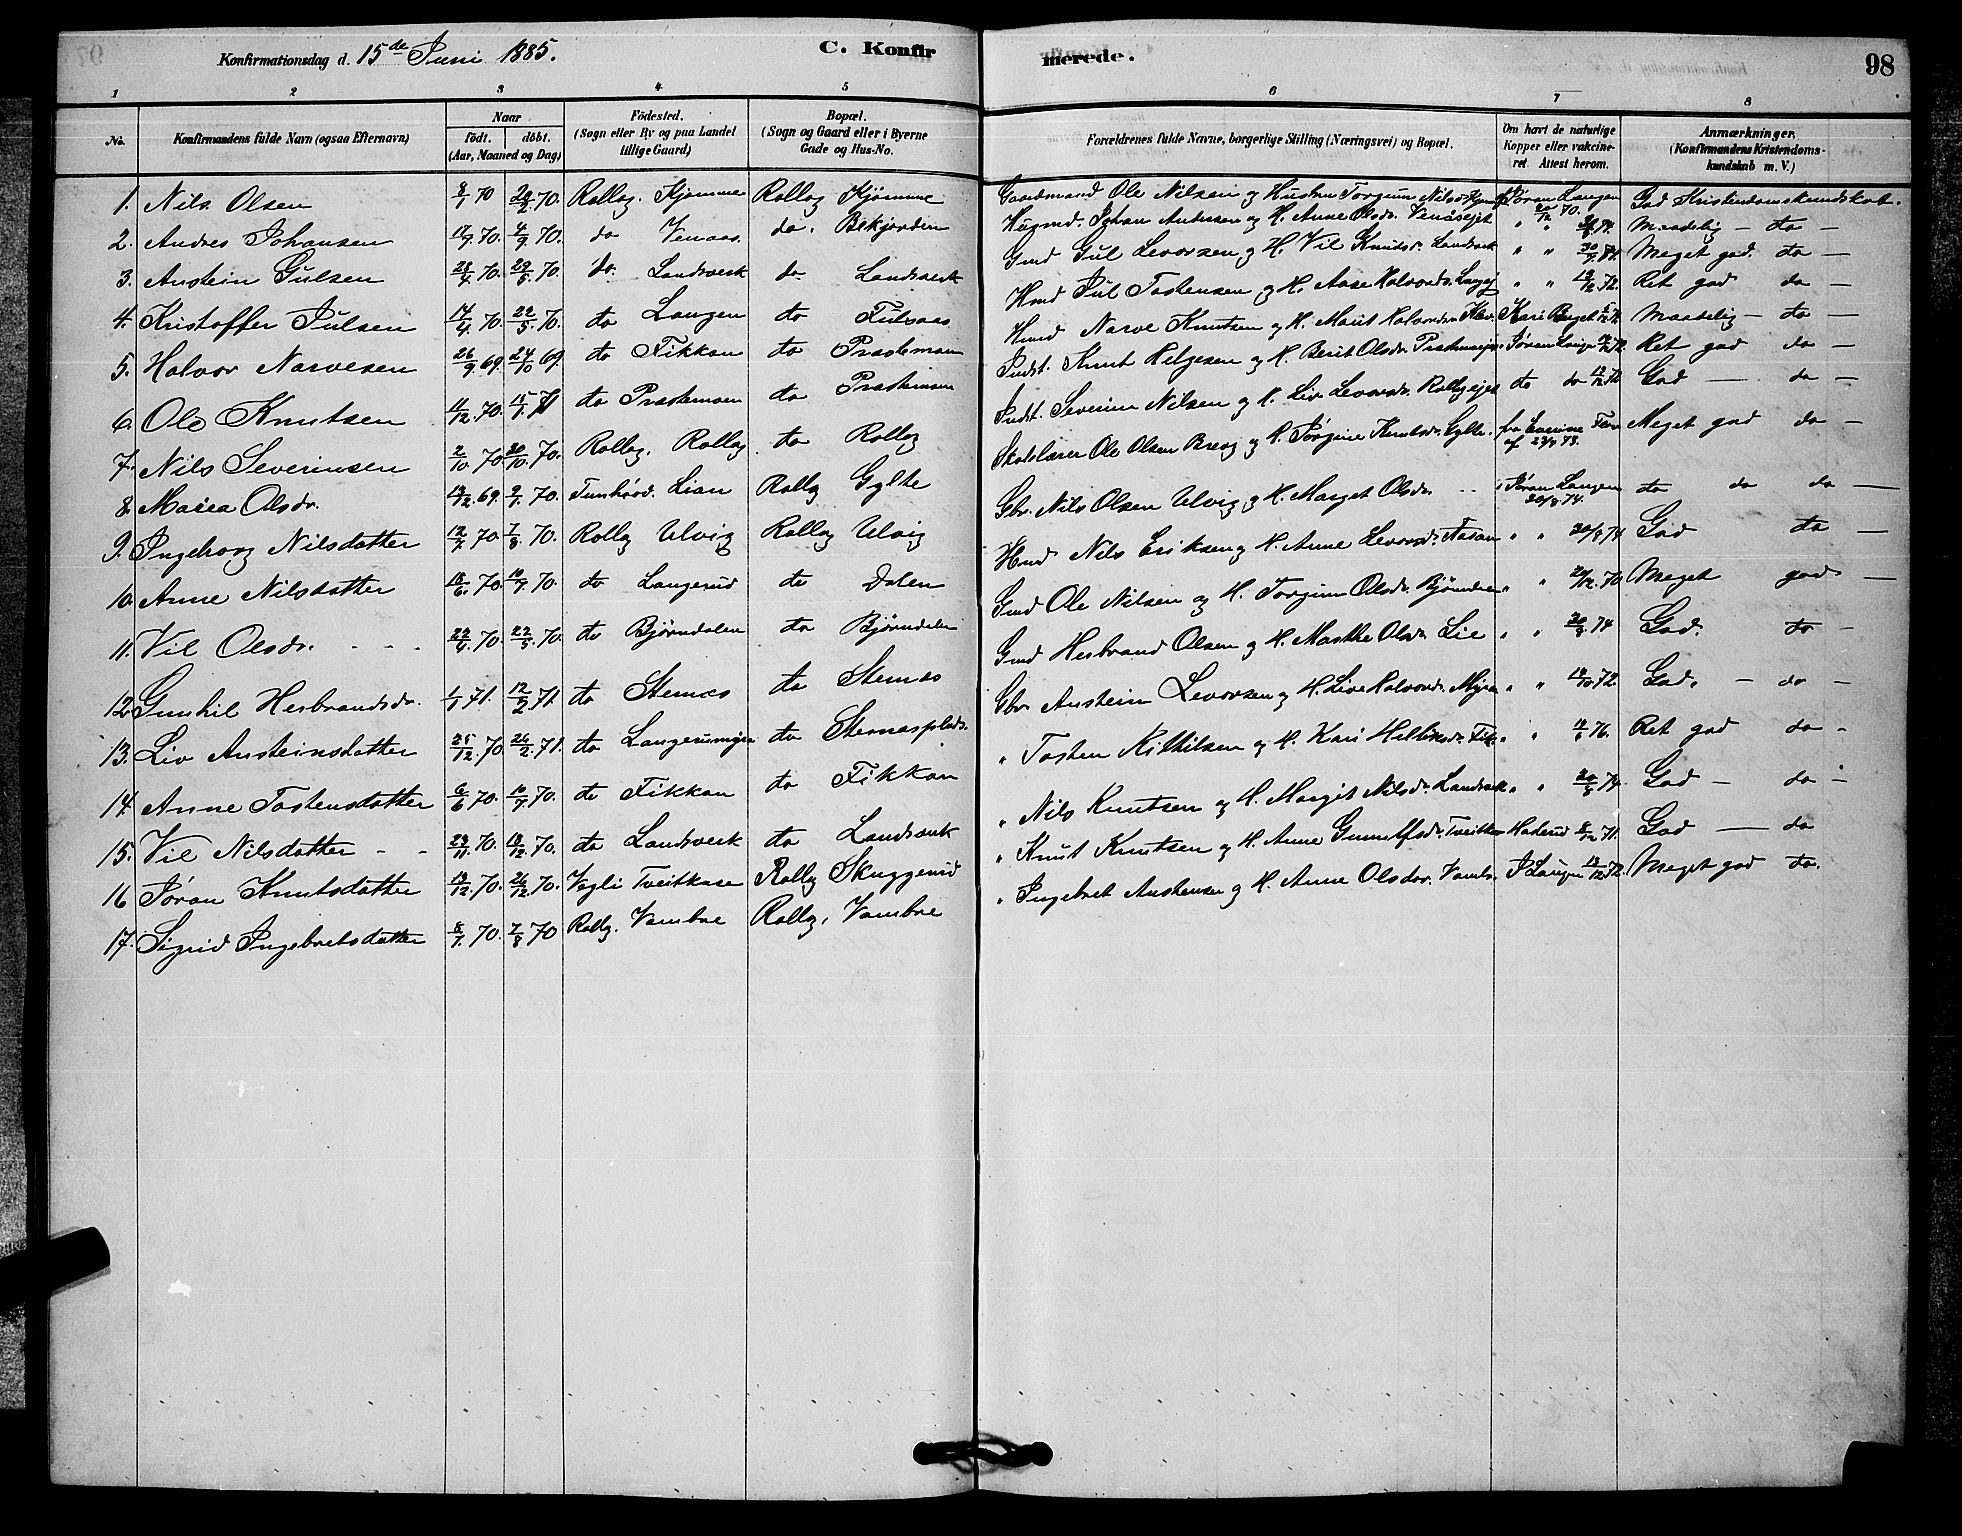 Konfirmationsdag d. 15de Juni 1885.
C. Konfirmerede.
98
1 2 3 4 5 6 7 8
No. Konfirmandens fulde Navn (ogsaa Efternavn) Naar födt. döbt. (Aar, Maaned og Dag) Födested. (Sogn eller By og paa Landet tillige Gaard) Bopæl. (Sogn og Gaard eller i Byerne Gade og Hus-No. Forældrenes fulde Navne, borgerlige Stilling (Næringsvei) og Bopæl. Om havt de naturlige Kopper eller vaccineret. Attest herom. Anmærkninger. (Konfirmandens Kristendomskundskab m. V.)
1. Nils Olsen 8/1 70 28/2 70. Rollag. Kjømme Rollag Kjømme Gaardmand Ole Nilsen og Hustru Torgun Nilsdr. Jøran Langen 20/12 70. God Kristendomskundskab.
2. Andres Johansen 17/9. 70. 4/9. 70. do Venaas. do. Bekjorden Húsmd. Johan Andersen og H. Anne Olsdr. Venåsejet " " 74. Maadelig — do —
3. Anstein Gulsen 28/4. 70. 29/5. 70. do. Landsverk do Landsverk Gmd Gul Levorsen og H. Vil Knutsdr. Landsverk " " Meget god. do —
4. Kristoffer Julsen 14/4. 70. 22/5. 70. do Langen do Fulsaas Hmd Jul Tostensen og H. Aase Halvorsdr. " " 72. Ret god do —
5. Halvor Narvesen 26/9 69. 24/10 69 do Fikkan do Prestemoen Hmd Narve Knutsen og H. Marit Halvorsdr. Kari Maadelig — do —
6. Ole Knutsen 11/12. 70. 15/1. 71 do Prestemoen do Prestemoen Indst. Knut Helgesen og H. Berit Olsdr. Jøran Langen Ret god do —
7. Nils Severinsen 2/10 70 20/10. 70. Rollag. Rollag do Rollag Indst. Severin Nilsen og H. Liv Levorsdr. Rollagejet do do God — do —
8. Maria Olsdr. 19/12. 69. 9/1. 70. Tunhovd. Lian Rollag Gylte Skolelærer Ole Olsen Breog og H. Jørgine Knutsdr. Gylte. fra af 23/9 73. Meget god do —
9. Ingeborg Nilsdatter 12/7. 70 7/8. 70. Rollag Ulvig Rollag Ulvig Gbr. Nils Olsen Ulvig og H. Marget Olsdr. Jøran Langen 20/8. 74. do do do —
10. Anne Nilsdatter 18/6. 70. 10/9. 70. do Langerud do Dalen Hmd Nils Eriksen og H. Anne Levorsdr. Aasan " " 20/8 74 God do —
11. Vil Olsdr. 22/4. 70. 22/5. 70. do Bjørndalen do Bjørndalen Gmd Ole Nilsen og H. Torgun Olsdr. " " 20/12. 70 Meget god —
12. Gunhil Herbrandsdr. 1/1 71. 12/2 71. do Stenaas do Stenaas Gmd Herbrand Olsen og H. Marthe Olsdr. Lie " " 20/8. 74 God. do —
13. Liv Ansteinsdatter 25/12. 70 26/2. 71. do Langerumyra do Stenaasplads. Gbr. Anstein Levorsen og H. Live Halvorsdr. Myra " " 72. God. — do —
14. Anne Tostensdatter 6/6. 70. 10/7. 70. do Fikkan do Fikkan " Tosten Kittilsen og H. Kari " " 76. Ret god do -
15. Vil Nilsdatter 29/11. 70. 18/12. 70. do Landsverk do Landsverk " Nils Knutsen og H. Margit Nilsdr. Landsverk " " 74. God — do —
16 Jøran Knutsdatter 19/12. 70. 26/12. 70. Vegli Tveitkasa Rollag Skuggerud " Knut Knutsen og H. Anne Gunulfsdr. Haderud 71. God — do
17. Sigrid Ingebretsdatter 8/7. 70. 7/8. 70 Rollag. Vambre Rollag. Vambre " Ingebret Anstensen og H. Anne Olsdr. Vambre. J Langen 72. Meget god do.